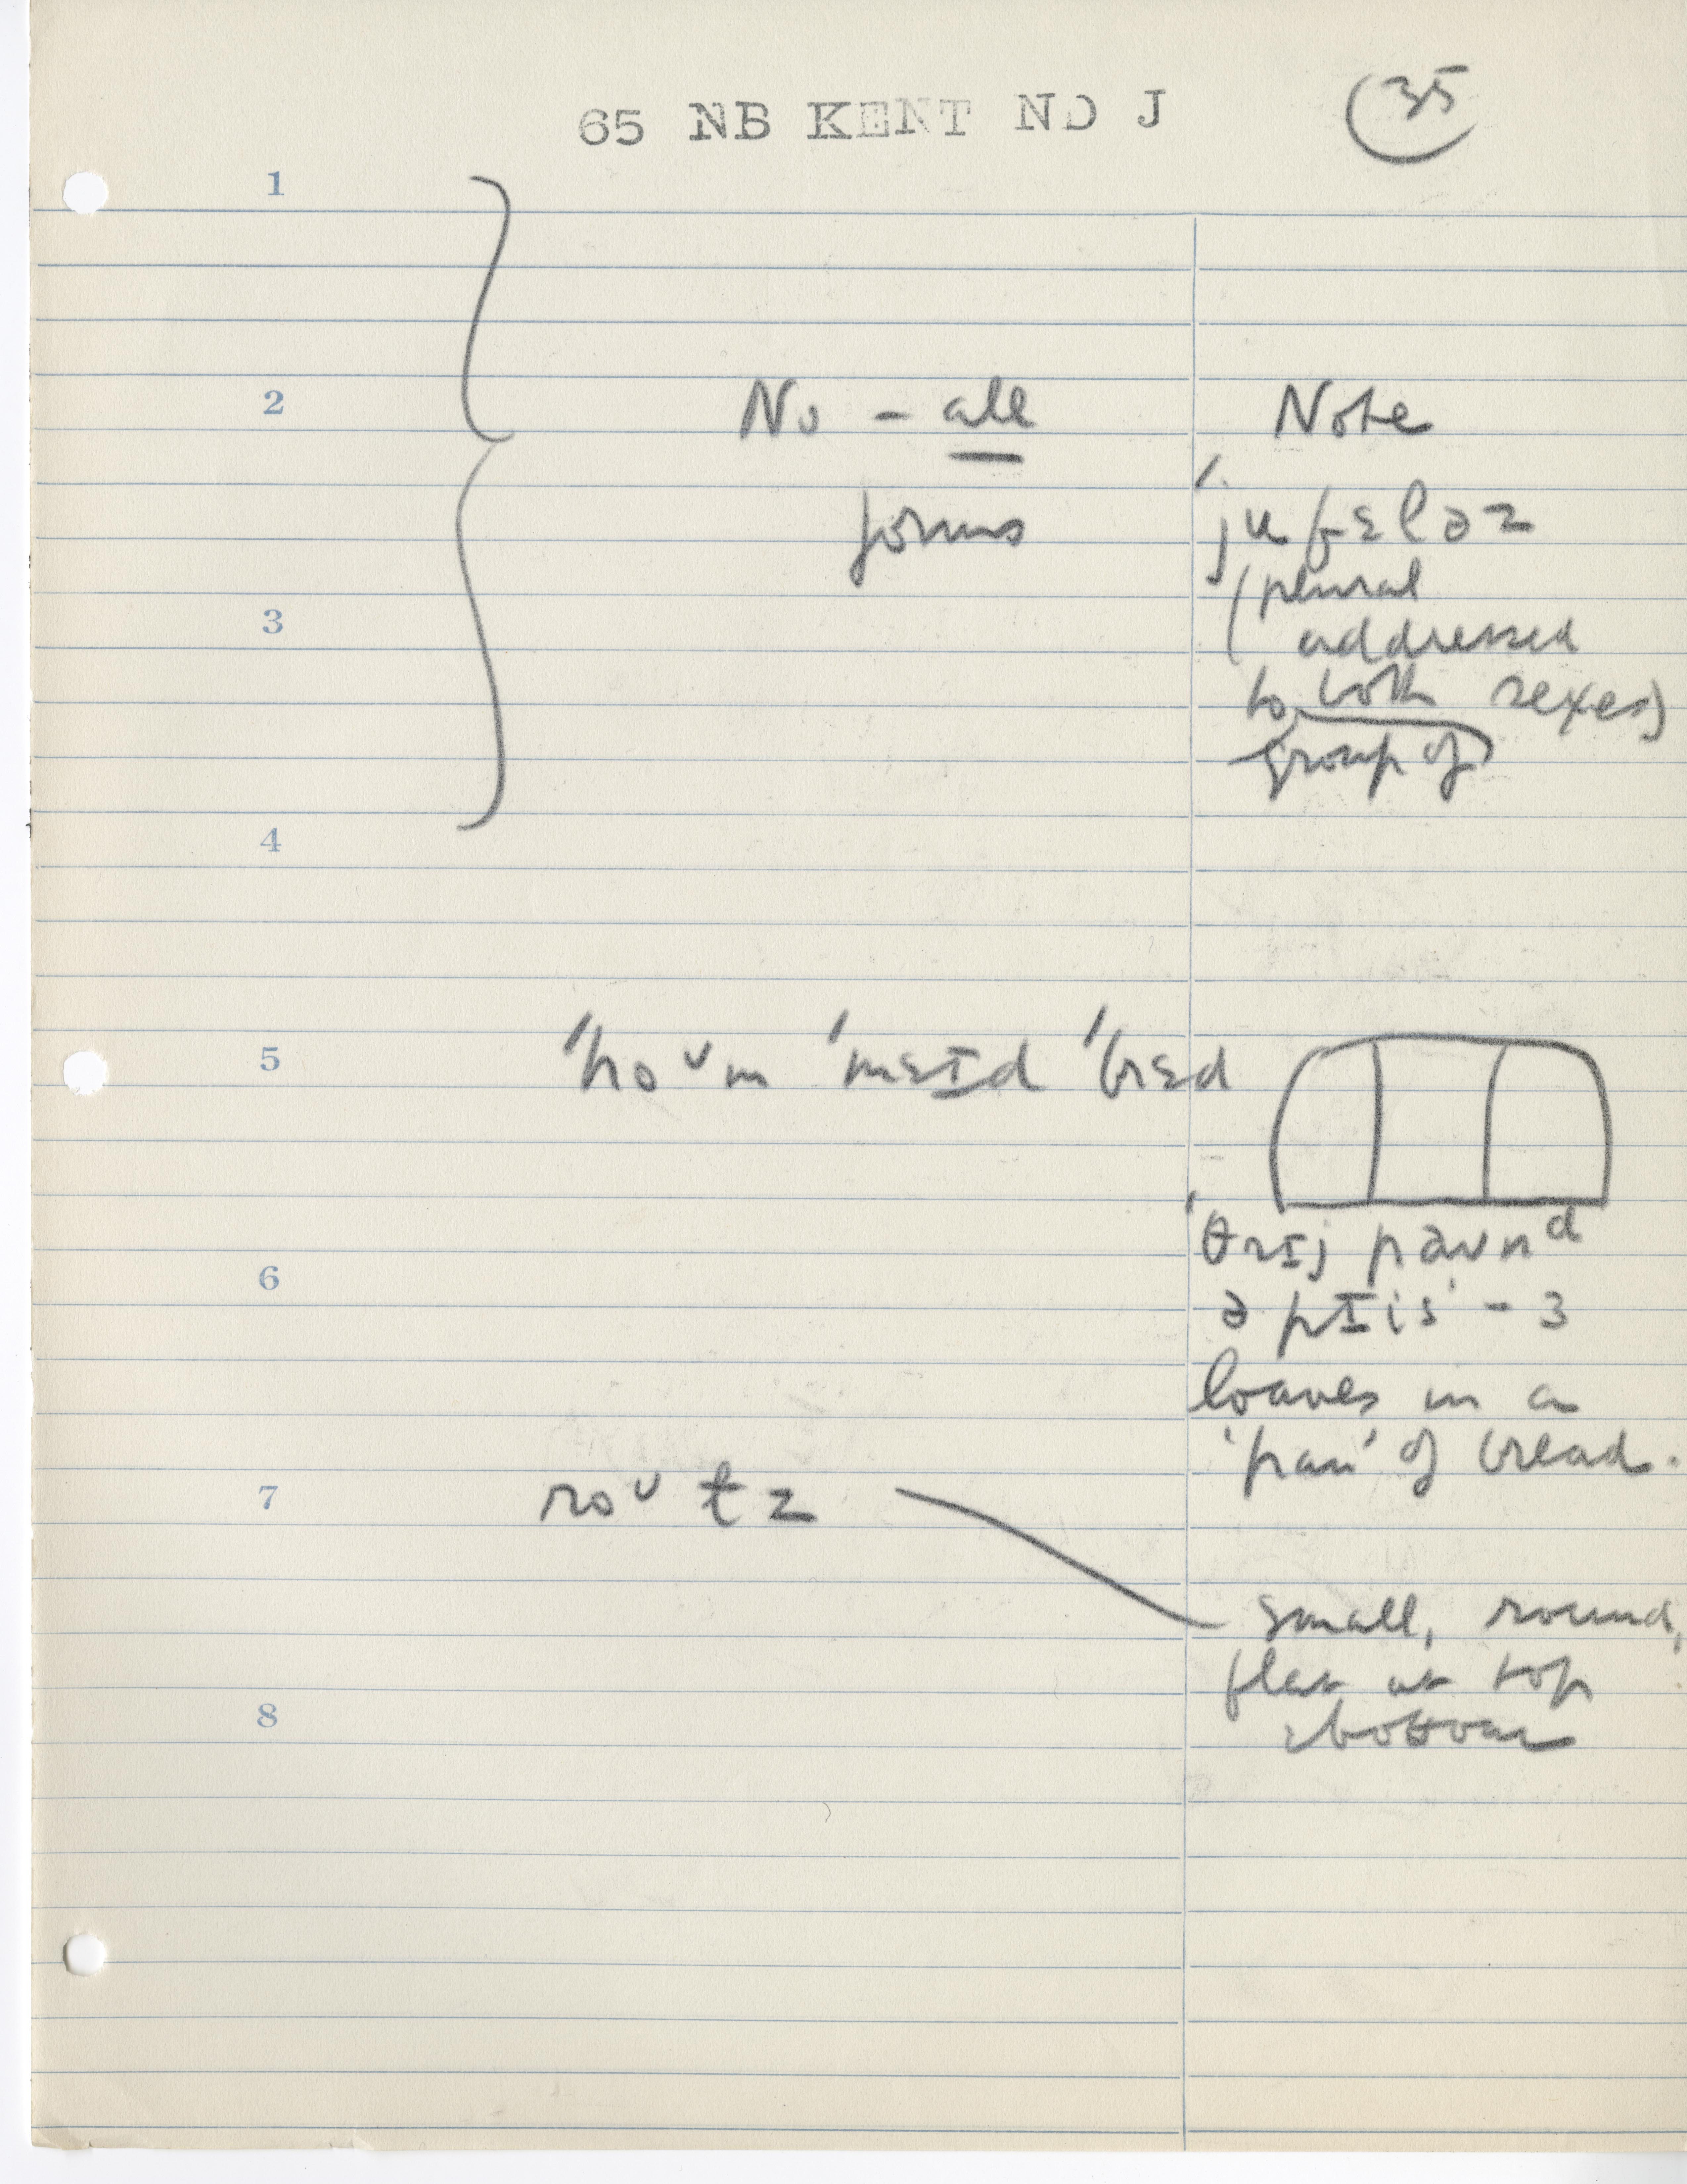 65 NB KENT NO J
35
1
2
No - all
forms
Note
ˈju fɛləz
(plural
addressed
to both sexes)
group of
3
4
5
ˈhoᴜm ˈmɛɪd ˈbrɛd
ˈθrɪj paʊnᵈ
ə pɪis - 3
loaves in a
'pan' of bread.
6
7
roᴜ tz
small, round,
flat at top
& bottom
8